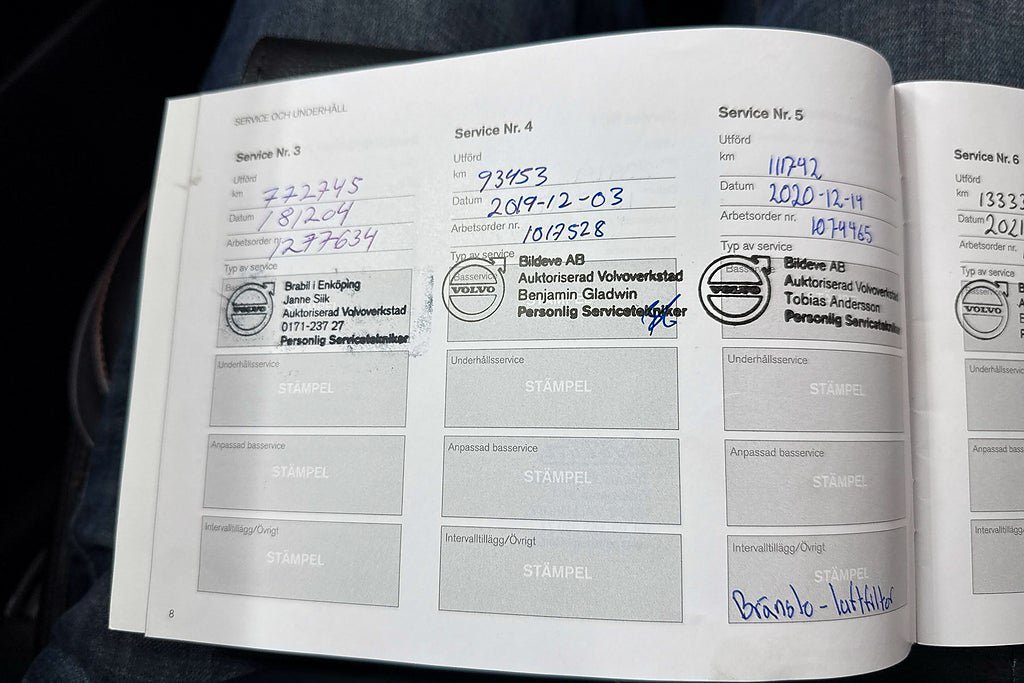 SERVICE OCH UNDERHÅLL
Service Nr. 3
Utförd
km 772745
Datum 181204
Arbetsorder nr. 1277634
Typ av service
VOLVO
Brabil i Enköping
Janne Siik
Auktoriserad Volvoverkstad
0171-237 27
Personlig Servicetekniker
Underhållsservice
STÄMPEL
Anpassad basservice
STÄMPEL
Intervalltillägg/Övrigt
STÄMPEL
8
Service Nr. 4
Utförd
km 93453
Datum 2019-12-03
Arbetsorder nr. 1017528
Typ av service
Basservice
VOLVO
Bildeve AB
Auktoriserad Volvoverkstad
Benjamin Gladwin
Personlig Servicetekniker
Underhållsservice
STÄMPEL
Anpassad basservice
STÄMPEL
Intervalltillägg/Övrigt
STÄMPEL
Service Nr. 5
Utförd
km 111742
Datum 2020-12-14
Arbetsorder nr. 1074465
Typ av service
VOLVO
Bildeve AB
Auktoriserad Volvoverkstad
Tobias Andersson
Personlig Servicetekniker
Underhållsservice
STÄMPEL
Anpassad basservice
STÄMPEL
Intervalltillägg/Övrigt
STÄMPEL
Bränsle - luftfilter
Service Nr. 6
Utförd
km 13333
Datum 2021
Arbetsorder nr.
Typ av service
VOLVO
Underhållsservice
Anpassad basservice
Intervalltillägg